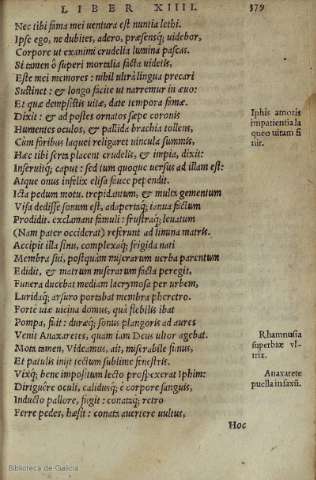 LIBER XIIII. 379
Nec tibi fama mei uentura est nuntia lethi.
Ipse ego, ne dubites, adero, præsensq; uidebor,
Corpore ut exanimi crudelia lumina pascas.
Si tamen ô superi mortalia facta uidetis,
Este mei memores: nihil ultra lingua precari
Sustinet: & longo facite ut narremur in æuo:
Et quæ dempsistis uitæ, date tempora famæ.
Dixit: & ad postes ornatos sæpe coronis
Humentes oculos, & pallida brachia tollens,
Cum foribus laquei religaret uincula summis,
Hæc tibi serta placent crudelis, & impia, dixit:
Inseruitq; caput: sed tum quoque uersus ad illam est:
Atque onus infelix elisa fauce pependit.
Icta pedum motu trepidantum, & multa gementum
Visa dedisse sonum est, adapertaq; ianua factum
Prodidit. exclamant famuli: frustraq; leuatum
(Nam pater occiderat) referunt ad limina matris.
Accipit illa sinu, complexaq; frigida nati
Membra sui, postquam miserarum uerba parentum
Edidit, & matrum miserarum facta peregit,
Funera ducebat mediam lacrymosa per urbem,
Luridaq; arsuro portabat membra pheretro.
Forte uiæ uicina domus, qua flebilis ibat
Pompa, fuit: duræq; sonus plangoris ad aures
Venit Anaxaretes, quam iam Deus ultor agebat.
Mota tamen, Videamus, ait, miserabile funus,
Et patulis inijt tectum sublime fenestris.
Vixq; bene impositum lecto prospexerat Iphim:
Diriguêre oculi, calidusq; è corpore sanguis,
Inducto pallore, fugit: conataq; retro
Ferre pedes, hæsit: conata auertere uultus,
Hoc
Iphis amoris
impatientia la
queo uitam fi
nit.
Rhamnusia
superbiæ vl-
trix.
Anaxarete
puella in saxũ.
Biblioteca de Galicia